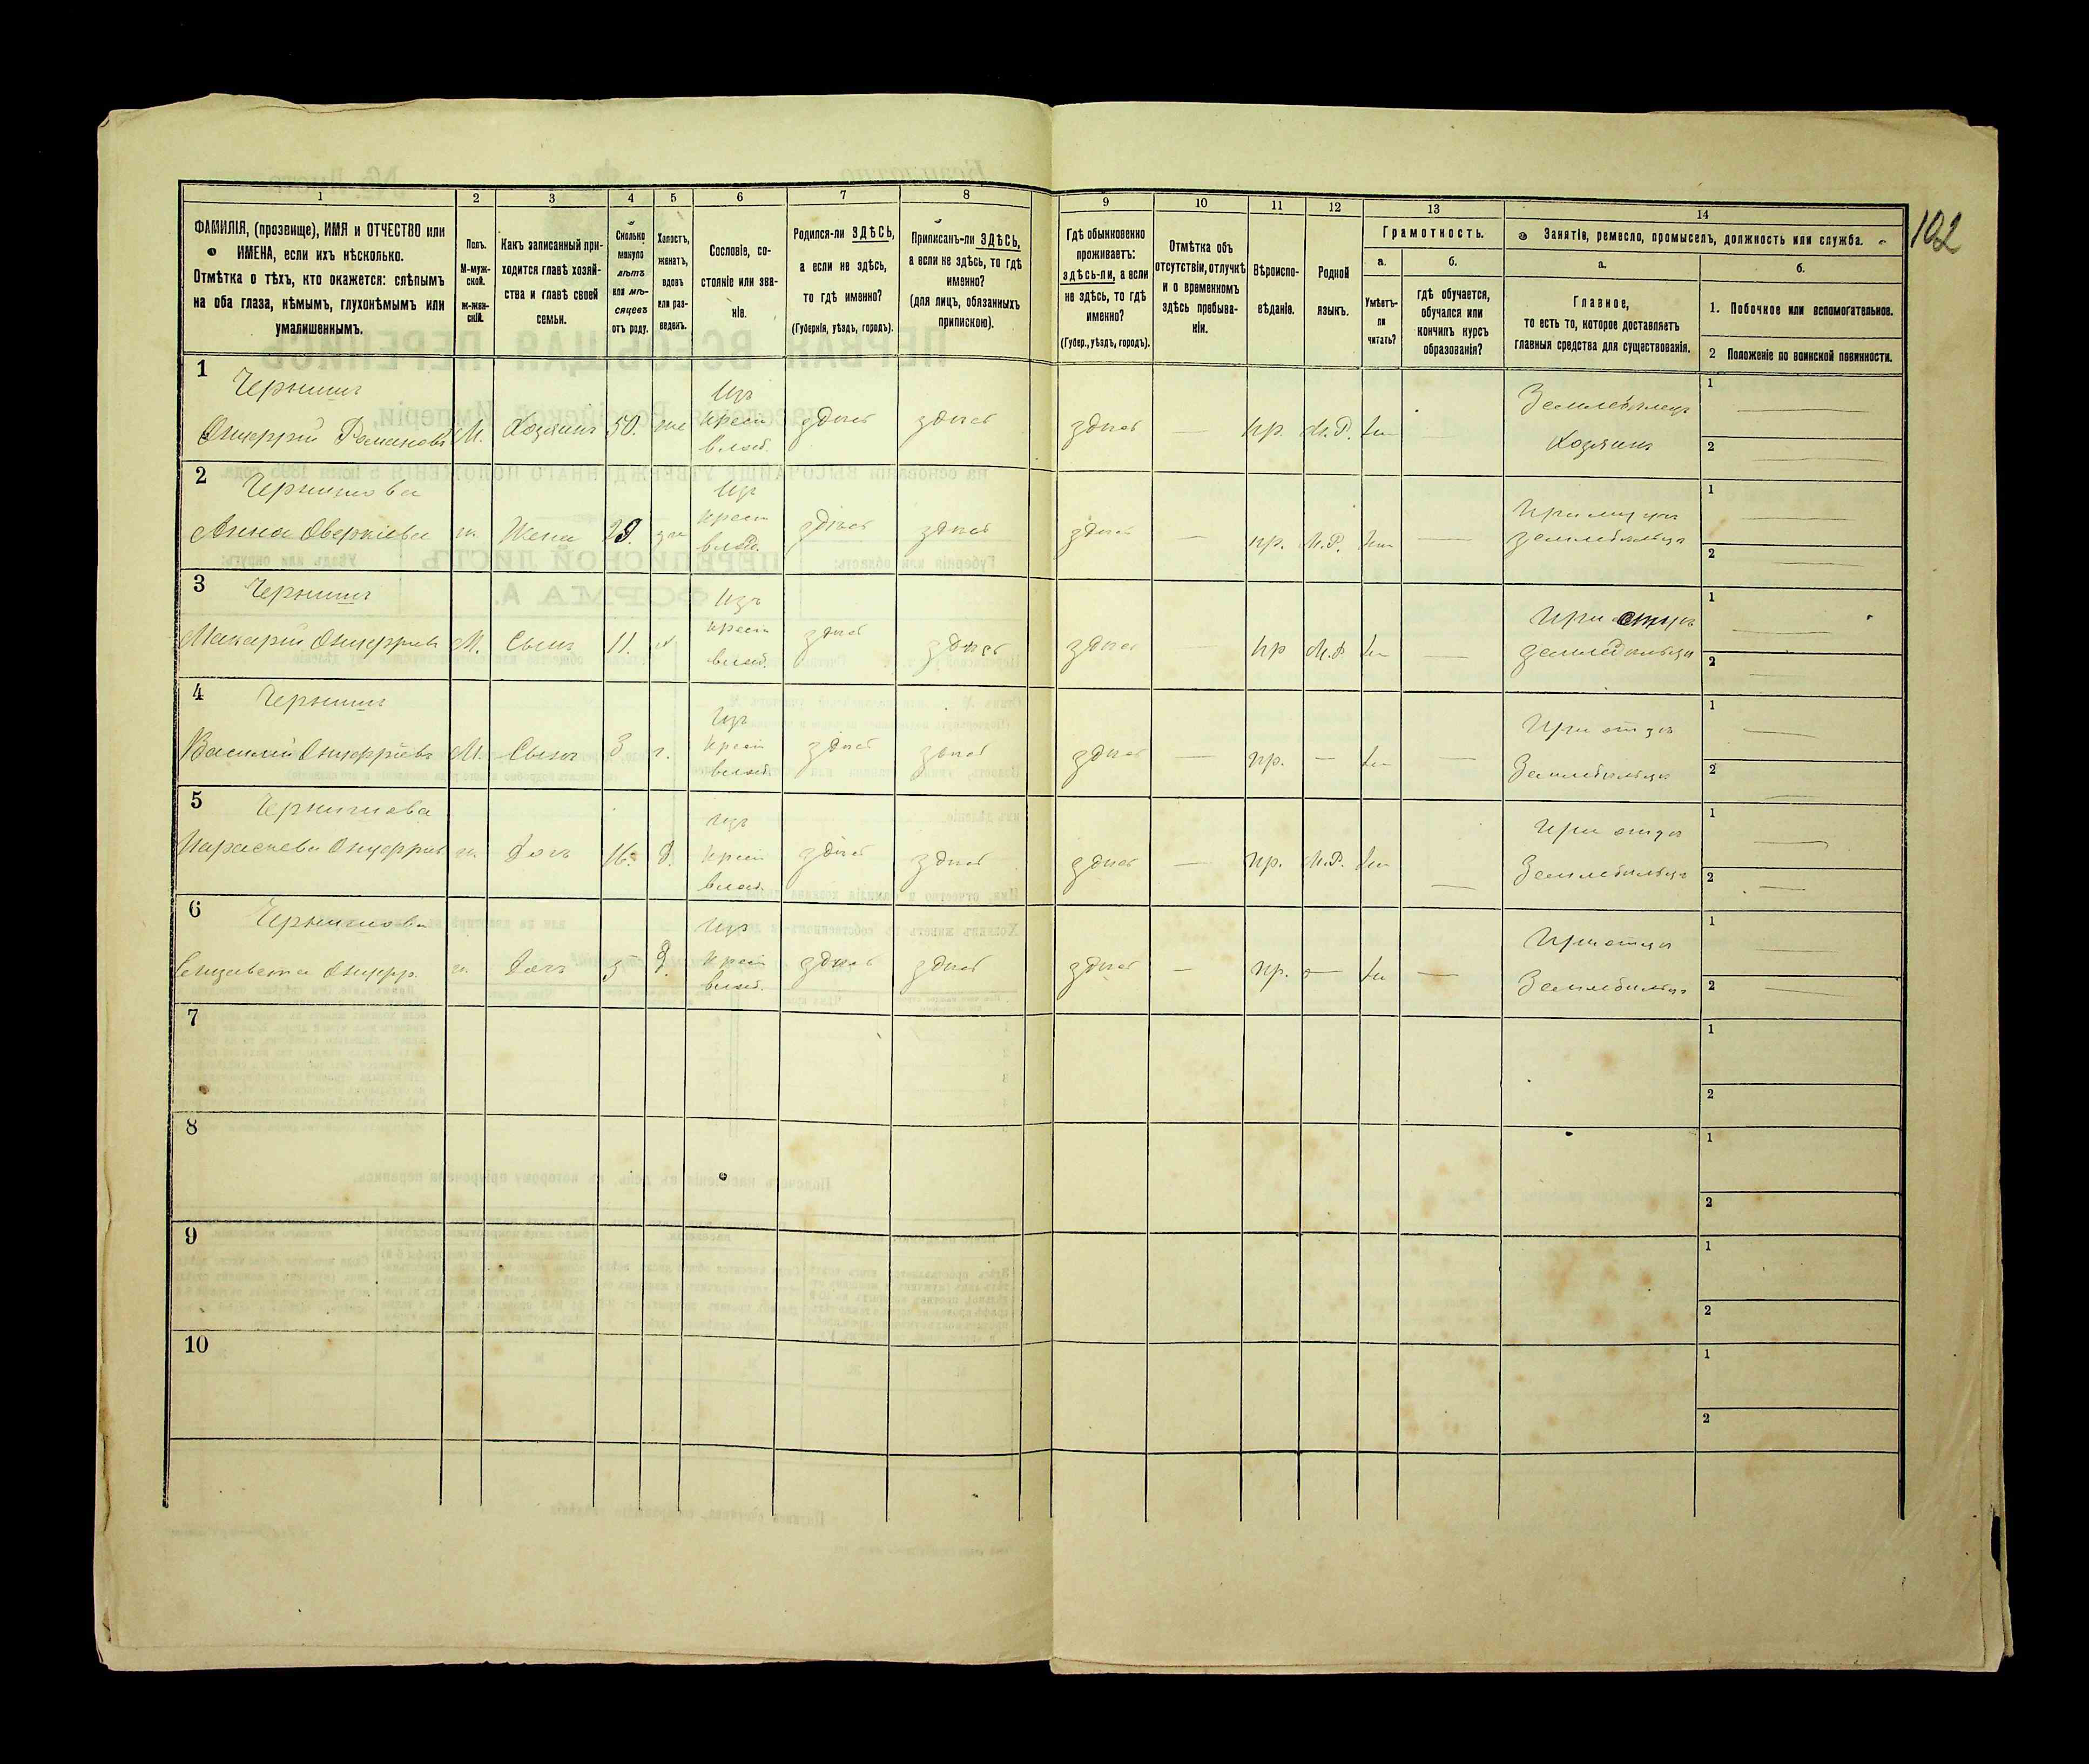 1 2 3 4 5 6 7 8 9 10 11 12 13 14
102
ФАМИЛІЯ, (прозвище), ИМЯ и ОТЧЕСТВО или
ИМЕНА, если ихъ нѣсколько.
Отмѣтка о тѣхъ, кто окажется: слѣпымъ
на оба глаза, нѣмымъ, глухонѣмымъ или
умалишеннымъ.
Полъ.
М-муж-
ской.
Ж-жен-
скій.
Какъ записанный при-
ходится главѣ хозяй-
ства и главѣ своей
семьи.
Сколько
минуло
лѣтъ
или мѣ-
сяцевъ
отъ роду.
Холостъ,
женатъ,
вдовъ
или раз-
веденъ.
Сословіе, со-
стояніе или зва-
ніе.
Родился-ли ЗДѢСЬ,
а если не здѣсь,
то гдѣ именно?
(Губернія, уѣздъ, городъ).
Приписанъ-ли ЗДѢСЬ,
а если не здѣсь, то гдѣ
именно?
(для лицъ, обязанныхъ
припискою).
Гдѣ обыкновенно
проживаетъ:
здѣсь-ли, а если
не здѣсь, то гдѣ
именно?
(Губер., уѣздъ, городъ).
Отмѣтка объ
отсутствіи, отлучкѣ
и о временномъ
здѣсь пребыва-
ніи.
Вѣроиспо-
вѣданіе.
Родной
языкъ.
Грамотность.
а.
Умѣетъ-
ли
читать?
б.
гдѣ обучается,
обучался или
кончилъ курсъ
образованія?
Занятіе, ремесло, промыселъ, должность или служба.
а.
Главное,
то есть то, которое доставляетъ
главныя средства для существованія.
б.
1. Побочное или вспомогательное.
2 Положеніе по воинской повинности.
1
Чернышъ Изъ Земледѣлецъ 1
Онуфрій Романовъ М. Хозяинъ 50. же Крест здѣсь здѣсь здѣсь — пр. М.Р. Хозяинъ
влад. 2
2
Чернышова Изъ 1
Анна Оверкіева ж. Жена крест здѣсь здѣсь здѣсь — пр. М.Р. земледѣльца
влад. 2
3
Чернышъ Изъ При отцѣ 1
Макарій Онуфріевъ М. Сынъ 11. крест здѣсь здѣсь здѣсь — пр М.Р. — земледѣльца
влад. 2
4
Чернышъ Изъ При отцѣ 1
Василій Онуфріевъ М. Сынъ 3 Крест здѣсь здѣсь здѣсь — пр. — — Земледѣльца
влад. 2
5
Чернышова Изъ При отцѣ 1
Параскева Онуфріев ж. Дочь 16. Д. Крест здѣсь здѣсь здѣсь — пр. М.Р. — Земледѣльца
влад. 2
6
Чернышова Изъ При отцѣ 1
Елизавета Онуфр. ж. Дочь 5 Д. Крест здѣсь здѣсь здѣсь — пр. — — Земледѣльца
влад. 2
7 1
2
8 1
2
9 1
2
10 1
2